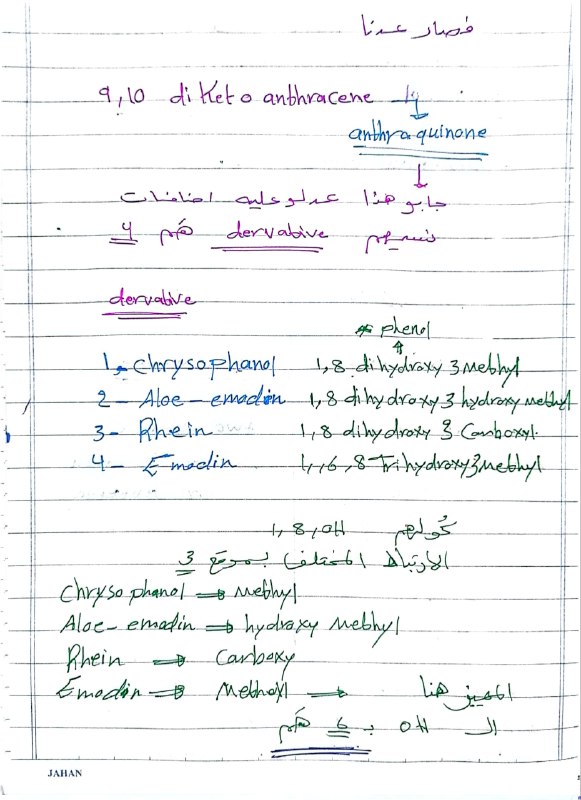 فصار عدنا
9,10 di Keto anthracene
anthraquinone
جابو هذا عدلو عليه اضافات
نسميهم dervative هَم 4
dervative
phenol
1- Chrysophanol 1,8 dihydroxy 3 Methyl
2- Aloe-emodin 1,8 dihydroxy 3 hydroxy Methyl
3- Rhein 1,8 dihydroxy 3 Carboxyl
4- Emodin 1,6,8 Trihydroxy 3 Methyl
كُولهم 1,8,OH
الارتباط المختلف بموقع 3
Chrysophanol → Methyl
Aloe-emodin → hydroxy Methyl
Rhein → Carboxy
Emodin → Methyl → المميز هنا
الـ OH بـ 6 هَم
JAHAN